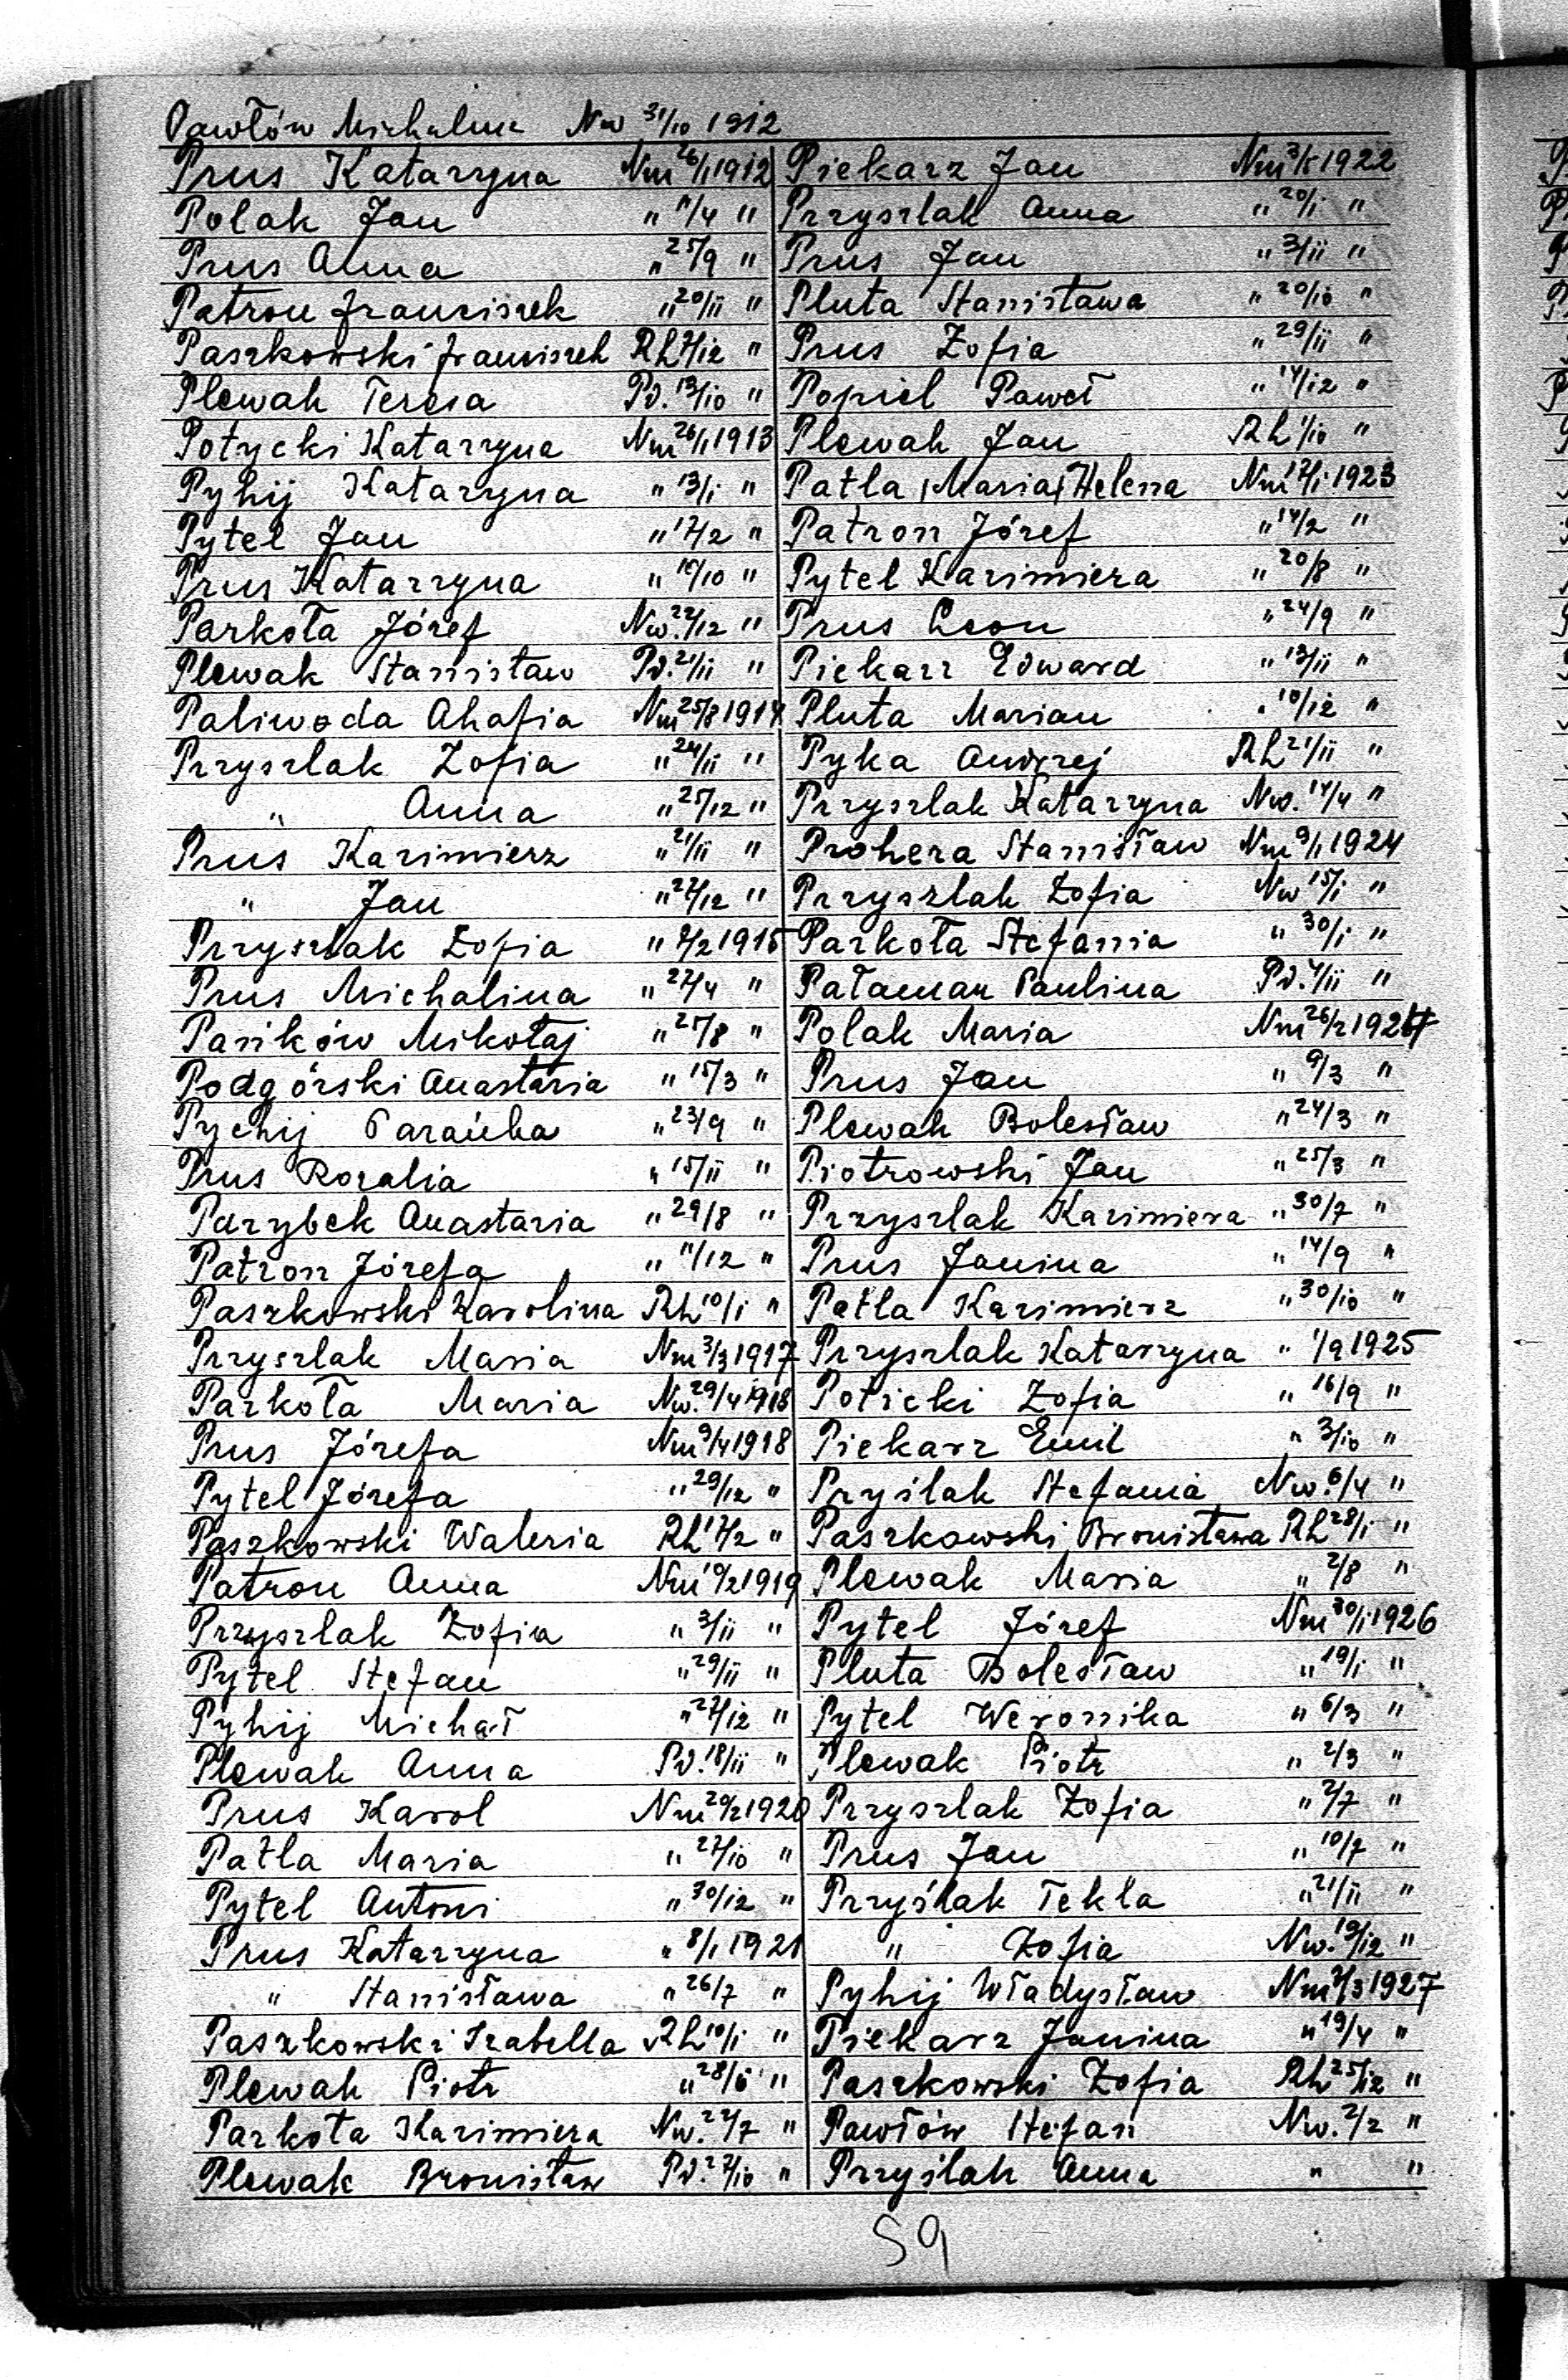 Pawłów Michalina Nw 31/10 1912
Prus Katarzyna Nm 26/1 1912
Polak Jan " 11/4 "
Prus Anna " 25/9 "
Patron Franciszek " 20/11 "
Paszkowski Franciszek Rh 7/12 "
Plewak Teresa Pd. 13/10 "
Potycki Katarzyna Nm 26/1 1913
Pyhij Katarzyna " 13/1 "
Pytel Jan " 17/2 "
Prus Katarzyna " 10/10 "
Parkoła Józef Nw. 22/12 "
Plewak Stanisław Pd. 21/11 "
Paliwoda Ahafia Nm 25/8 1914
Przyszlak Zofia " 24/11 "
" Anna " 25/12 "
Prus Kazimierz " 21/11 "
" Jan " 27/12 "
Przyszlak Zofia " 2/2 1915
Prus Michalina " 27/4 "
Pańków Mikołaj " 25/8 "
Podgórski Anastazia " 15/3 "
Pychij Parańka " 23/9 "
Prus Rozalia " 15/11 "
Parzybek Anastazia " 29/8 "
Patron Józefa " 11/12 "
Paszkowski Karolina Rh 10/1 "
Przyszlak Maria Nm 3/3 1917
Parkoła Maria Nw. 29/4 1918
Prus Józefa Nm 9/4 1918
Pytel Józefa " 29/12 "
Paszkowski Waleria Rh 17/2 "
Patron Anna Nm 10/2 1919
Przyszlak Zofia " 3/11 "
Pytel Stefan " 29/11 "
Pyhij Michał " 27/12 "
Plewak Anna Pd. 18/11 "
Prus Karol Nm 20/2 1920
Patla Maria " 27/10 "
Pytel Antoni " 30/12 "
Prus Katarzyna " 8/1 1921
" Stanisława " 26/7 "
Paszkowski Izabella Rh 10/1 "
Plewak Piotr " 28/6 "
Parkoła Kazimiera Nw. 22/7 "
Plewak Bronisław Pd. 27/10 "
Piekarz Jan Nm 3/5 1922
Przyszlak Anna " 20/1 "
Prus Jan " 3/11 "
Pluta Stanisława " 20/10 "
Prus Zofia " 29/11 "
Popiel Paweł " 14/12 "
Plewak Jan Rh 1/10 "
Patla Maria Helena Nm 17/1 1923
Patron Józef " 14/2 "
Pytel Kazimiera " 20/8 "
Prus Leon " 24/9 "
Piekarz Edward " 13/11 "
Pluta Marian " 10/12 "
Pyka Andrzej Rh 21/11 "
Przyszlak Katarzyna Nw. 14/4 "
Prohera Stanisław Nm 9/1 1924
Przyszlak Zofia Nw 15/1 "
Parkoła Stefania " 30/1 "
Pałamar Paulina Pd. 4/11 "
Polak Maria Nm 26/2 1924
Prus Jan " 9/3 "
Plewak Bolesław " 24/3 "
Piotrowski Jan " 25/3 "
Przyszlak Kazimiera " 30/7 "
Prus Janina " 14/9 "
Patla Kazimierz " 30/10 "
Przyszlak Katarzyna " 1/9 1925
Poticki Zofia " 16/9 "
Piekarz Emil " 3/10 "
Pryślak Stefania Nw. 6/4 "
Paszkowski Bronisława Rh 28/1 "
Plewak Maria " 2/8 "
Pytel Józef Nm 30/1 1926
Pluta Bolesław " 19/1 "
Pytel Weronika " 6/3 "
Plewak Piotr " 2/3 "
Przyszlak Zofia " 2/7 "
Prus Jan " 10/7 "
Pryślak Tekla " 21/11 "
" Zofia Nw. 19/12 "
Pyhij Władysław Nm 2/3 1927
Piekarz Janina " 19/4 "
Paszkowski Zofia Rh 25/12 "
Pawłów Stefan Nw. 2/2 "
Przyślak Anna " "
59